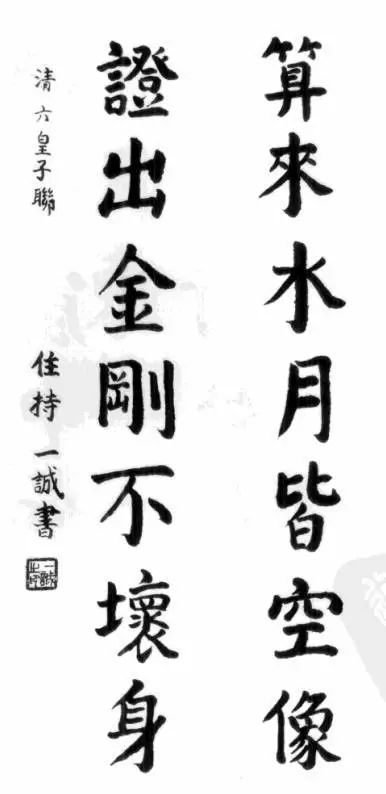 算來水月皆空像
證出金剛不壞身
清六皇子聯
住持一誠書